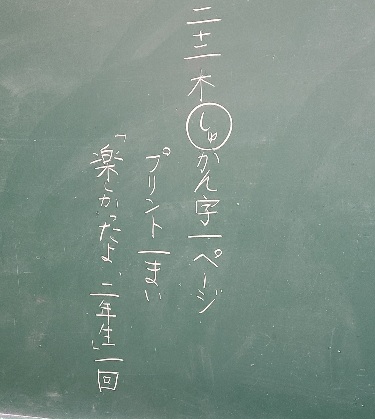 二十二 木 しゅ かん字一ページ
プリント一まい
「楽しかったよ、二年生」一回